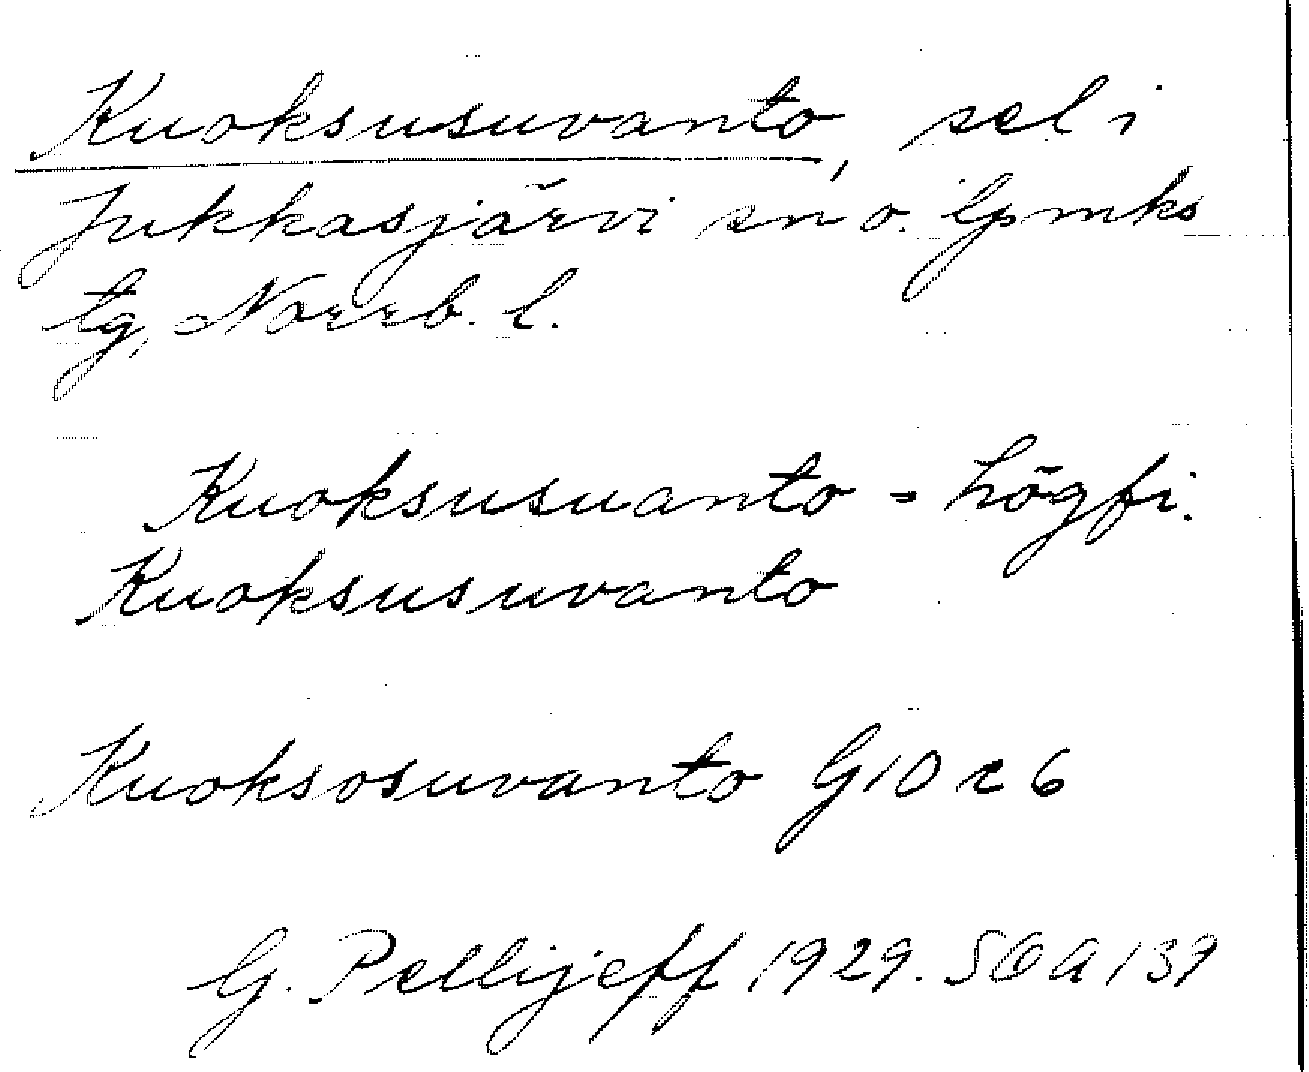 Kuoksusuvanto, sel i
Jukkasjärvi sn o. lpmks
tg, Norrb. l.
Kuoksusuanto = högfi.
Kuoksusuvanto
Kuoksosuvanto G10 c 6
G. Pellijeff 1929. SOA 139